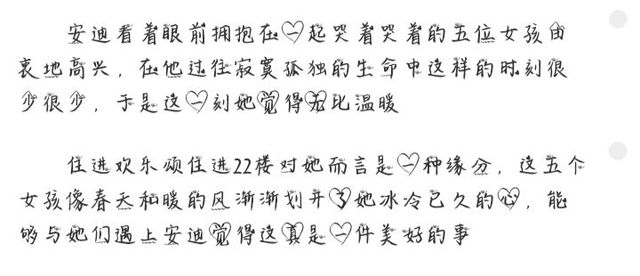 安迪看着眼前拥抱在一起哭着哭着的五位女孩由
衷地高兴，在他过往寂寞孤独的生命中这样的时刻很
少很少，于是这一刻她觉得无比温暖
住进欢乐颂住进22楼对她而言是一种缘分，这五个
女孩像春天和暖的风渐渐划开了她冰冷已久的心，能
够与她们遇上安迪觉得这真是一件美好的事